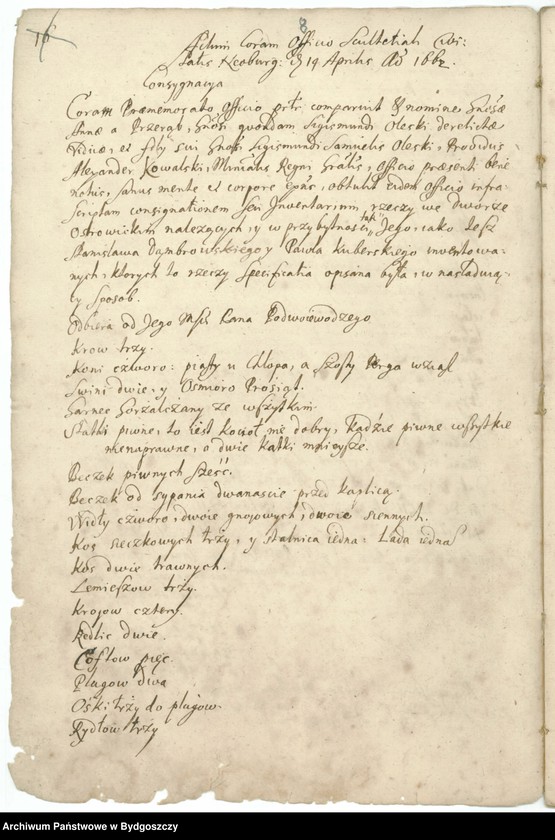 16
8
Actum Coram Officio Scultetiali Civi:
tatis Keoburg: D 19 Aprilis Ao 1662.
Consygnacya
Coram Præmemorato Officio prtr comparuit & nomine Gnosæ
Annæ a Przerąb, Gnosi quondam Sigismundi Oleski derelictæ
Viduæ, et fily sui Gnosi Sigismundi Samuelis Oleski, Providus
Alexander Kowalski, Officio præsenti bene
notus, sanus mente et corpore epns, obtulit eidem Officio infra
Scriptam consignationem seu Inventarium, rzeczy we dworze
Ostrowickim nalezących, y w przybytnosci tak Jego, iako tesz
Stanisława Dąmbrowskiego y Pawła Kuberskiego inwentowa
nych, ktorych to rzeczy Specificatia opisana była, w nasladuią
cy sposob.
Odbiera od Jego Msci Pana Podwoiewodzego
Krow trzy.
Koni czworo: piąty u Chłopa, a Szosty wział
Swini dwie, y Osmoro Prosiąt.
Garnec Gorzałczany ze wszytkim.
Statki piwne, to iest kocioł nie dobry, Kadzie piwne wszytkie
nienaprawne, o dwie Katki mnieysze.
Beczek piwnych sześć.
Beczek od sypania dwanascie przed kaplicą.
Widły czworo, dwoie gnojowych, dwoie siennych.
Kos sieczkowych trzy, y stalnica iedna. Lada iedna
Kos dwie trawnych.
Lemieszow trzy.
Krojow cztery.
Redlic dwie.
pięc.
Plugow dwa
Oski trzy do plugow.
Rydlow trzy
Archiwum Państwowe w Bydgoszczy